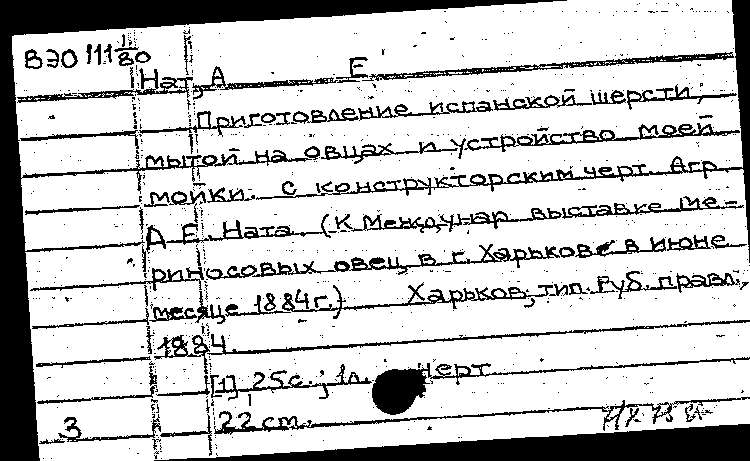 ВЭО 111 1/80
Нат, А Е
Приготовление испанской шерсти,
мытой на овцах и устройство моей
мойки. С конструкторским черт. Агр.
А Е. Ната. (К Междунар выставке ме-
риносовых овец в г. Харькове в июне
месяце 1884 г.) Харьков, тип. Губ. правл.,
1884.
[1], 25 с.; 1 л. черт
22 cm.
3